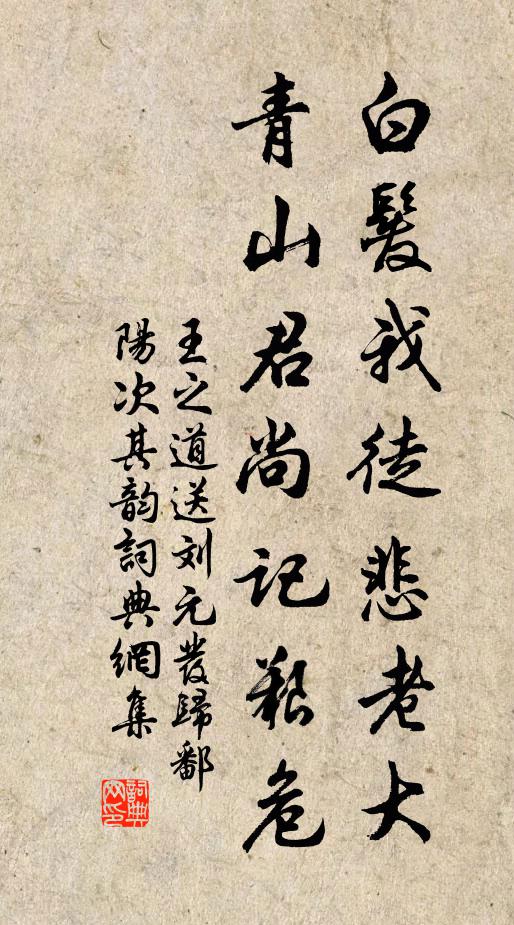 白髮我徒悲老大
青山君尚記艱危
王之道送刘元發歸鄱
陽次其韵詞典網集
詞典網印